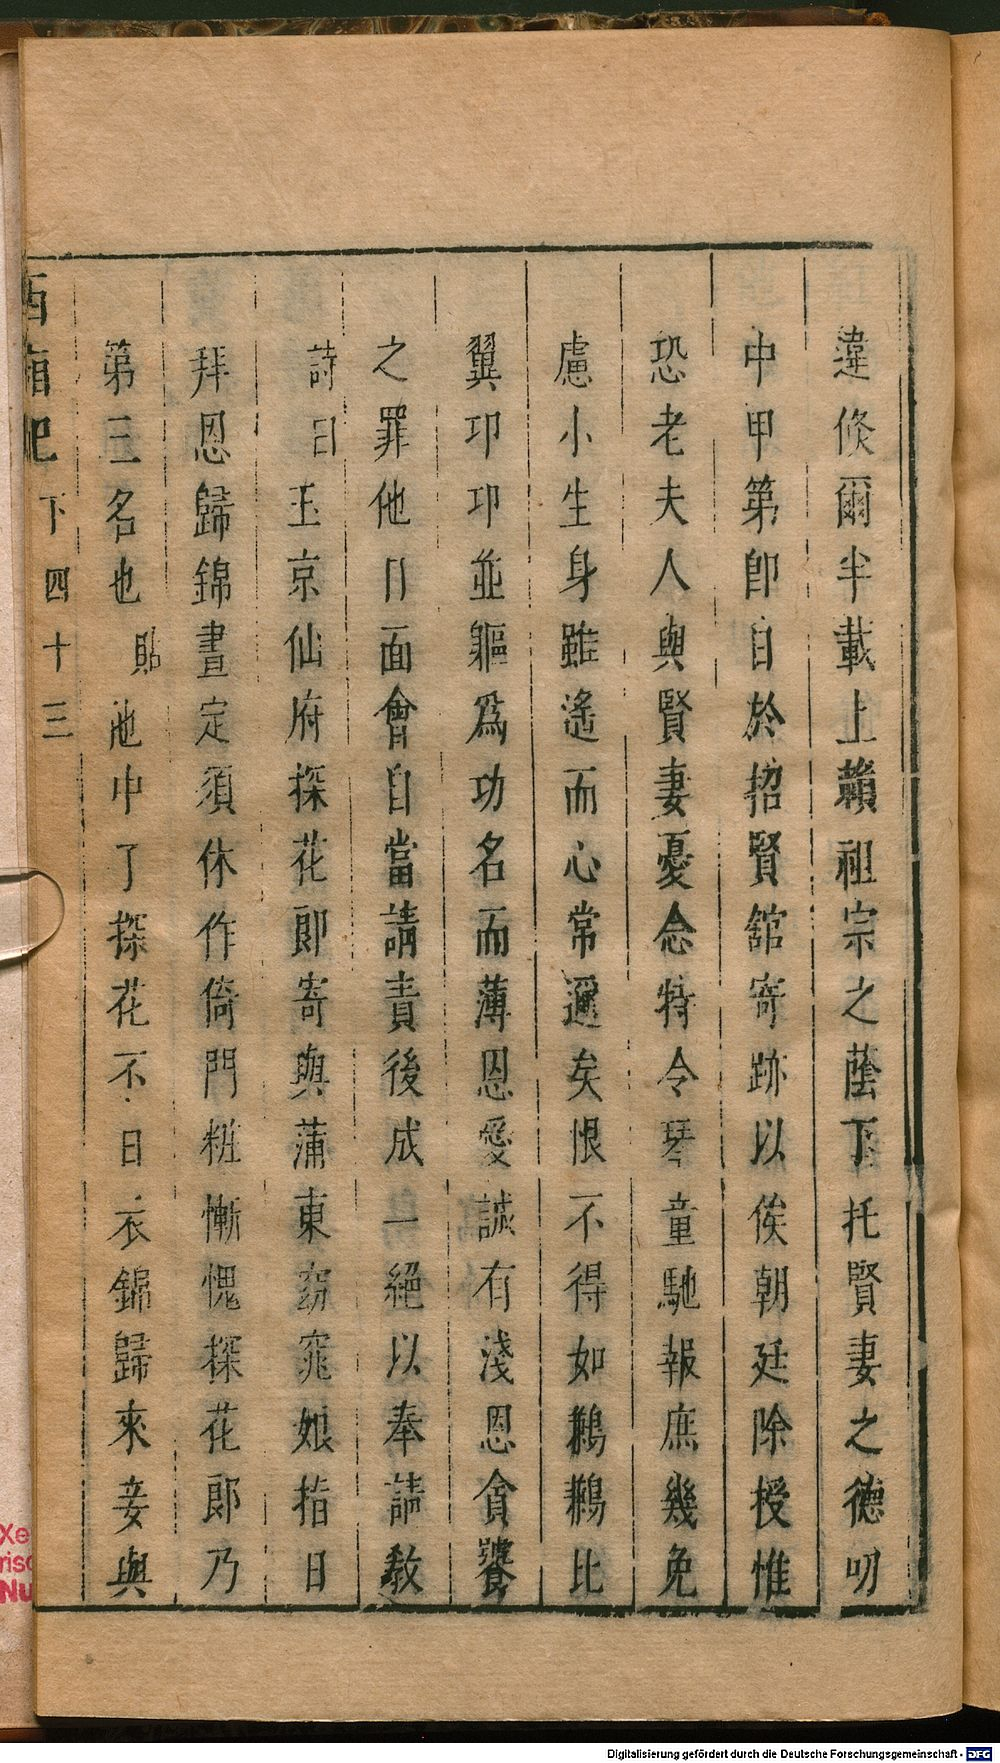 違倏爾半載上賴祖宗之蔭下托賢妻之德叨
中甲第卽日於招賢舘寄跡以俟朝廷除授惟
恐老夫人與賢妻憂念特令琴童馳報庶幾免
慮小生身雖遙而心常邇矣恨不得如鶼鶼比
翼卭卭並軀爲功名而薄恩愛誠有淺恩貪饕
之罪他日面會自當請責後成一絕以奉請教
詩曰玉京仙府探花郎寄與蒲東窈窕娘指日
拜恩歸錦晝定須休作倚門粧慚愧探花郎乃
第三名也 貼 池中了探花不日衣錦歸來妾與
西廂記 下 四十三
Digitalisierung gefördert durch die Deutsche Forschungsgemeinschaft - DFG